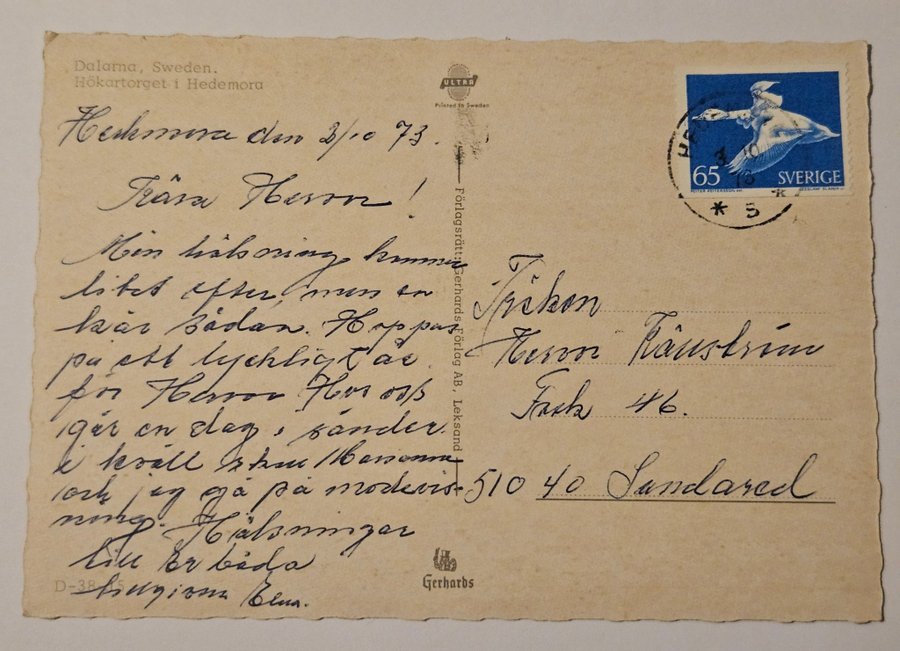 Dalarna, Sweden.
Hökartorget i Hedemora
ULTRA
Printed in Sweden
Hedemora den 3/10 73.
Kära Hervor!
Min hälsning kommer
litet efter, men en
kär sådan. Hoppas
på ett lyckligt år
för Hervor. Hos oss
går en dag i sänder.
i kväll skall
och jag gå på modevis-
ning. Hälsningar
till Er båda
Elna.
D-38
Förlagsrätt: Gerhards Förlag AB, Leksand
Gerhards
65 SVERIGE
10
* 5 *
Fröken
Hervor
Fack 46.
510 40 Sandared